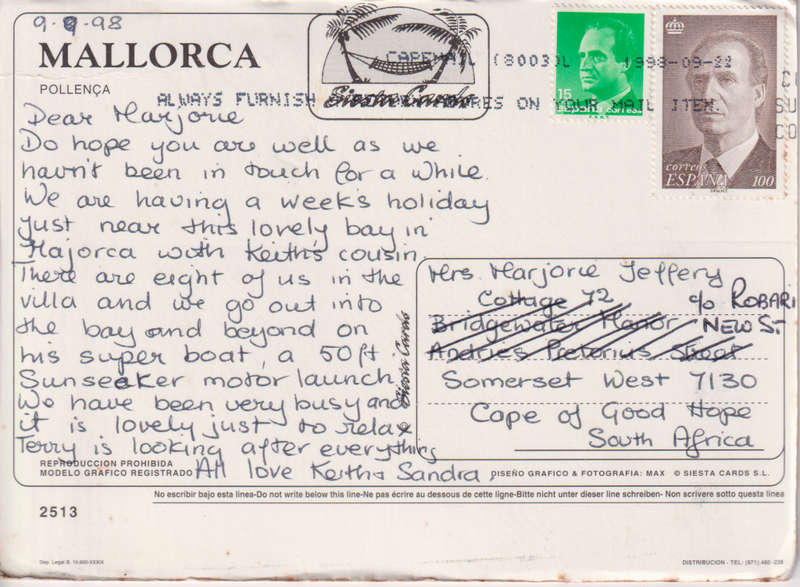 9.9.98
MALLORCA
POLLENÇA
CAPEMAIL (8003)L 1998-09-22
ALWAYS FURNISH ON YOUR MAIL ITEM.
Siesta Cards
15
España correos
correos
ESPAÑA 100
Dear Marjorie
Do hope you are well as we
havn't been in touch for a while.
We are having a weeks holiday
just near this lovely bay in
Majorca with Keith's cousin.
There are eight of us in the
villa and we go out into
the bay and beyond on
his super boat, a 50ft
Sunseeker motor launch.
We have been very busy and
it is lovely just to relax
Terry is looking after everything
All love Keith & Sandra.
Siesta Cards
Mrs. Marjorie Jeffery
Cottage 72 c/o ROBARI
Bridgewater Manor NEW ST.
Andries Pretorius Street
Somerset West 7130
Cape of Good Hope
South Africa
REPRODUCCION PROHIBIDA
MODELO GRAFICO REGISTRADO
DISEÑO GRAFICO & FOTOGRAFIA: MAX © SIESTA CARDS S.L.
No escribir bajo esta linea-Do not write below this line-Ne pas écrire au dessous de cette ligne-Bitte nicht unter dieser line schreiben- Non scrivere sotto questa linea
2513
DISTRIBUCION - TEL: (971)